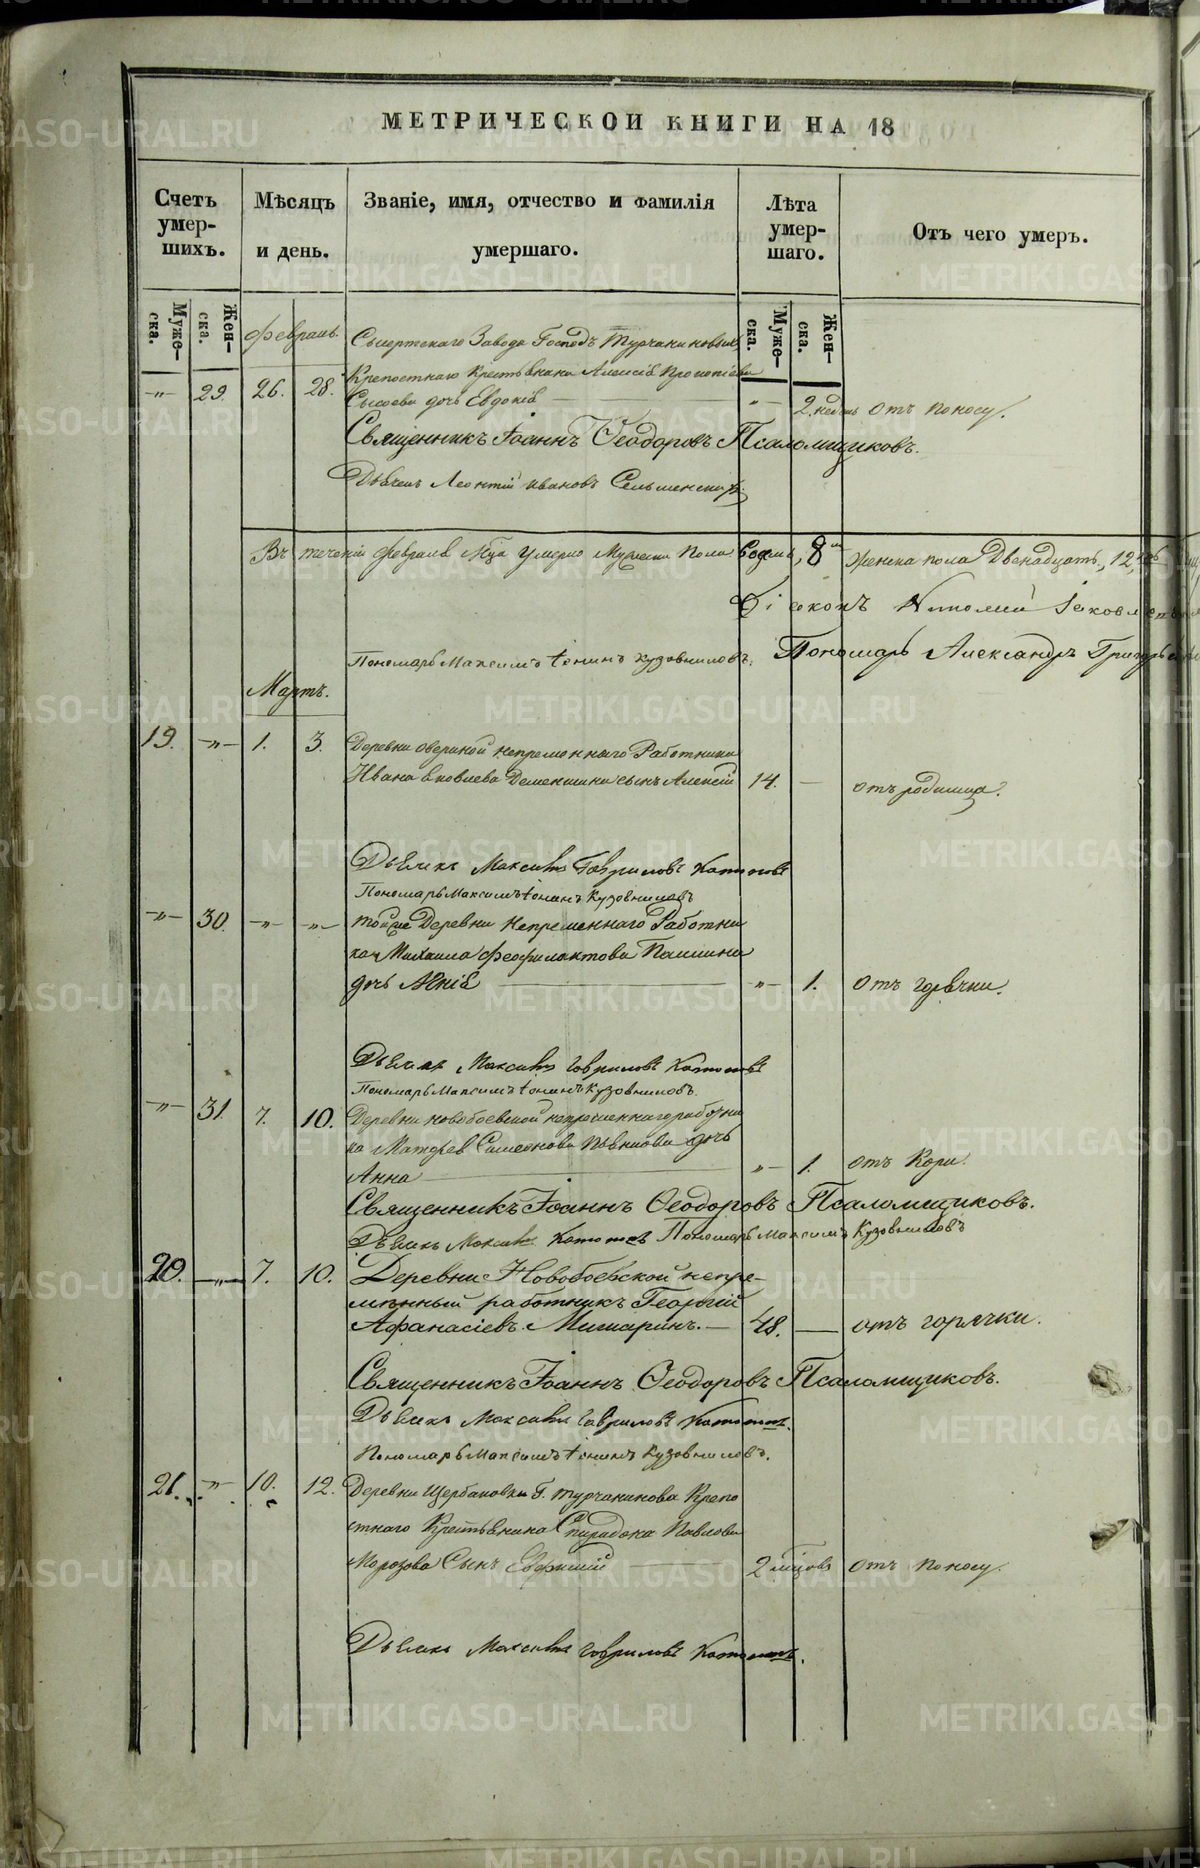 МЕТРИЧЕСКОЙ КНИГИ НА 18
Счетъ умер-шихъ.
Мѣсяцъ и день.
Званіе, имя, отчество и фамилія умершаго.
Лѣта умер-шаго.
Отъ чего умеръ.
Муже-ска.
Жен-ска.
Муже-ска.
Жен-ска.
Февраль.
Сысертскаго Завода Господъ Турчаниновыхъ
29. 26. 28. Крепостнаго Крестьянина Алексѣя Прокопіева
Сысоева дочь Евдокія 2 недѣль отъ поносу.
Священникъ Іоаннъ Ѳеодоровъ Псаломщиковъ.
Дьячекъ Леонтій Ивановъ Сельменскій
Въ теченіи февраля Мца умерло Мужеска Пола 8 женска пола Двенадцать, 12,
Діаконъ Іаковлевъ
Пономарь Максимъ Кузовниковъ. Пономарь Александръ
Мартъ.
19. 1. 3. Деревни непременнаго Работника
Ивана Яковлева сынъ Алексѣй 14. отъ родимца.
Дьячекъ Максимъ Гавриловъ
Пономарь Максимъ Кузовниковъ
30. тойже Деревни Непременнаго Работни
ка Михаила Феофилактова
дочь 1. отъ горячки.
Дьячекъ Максимъ Гавриловъ
Пономарь Максимъ Кузовниковъ.
31. 7. 10. Деревни новобоевской непременнаго работни
ка Матфея Симеонова дочь
Анна 1. отъ Кори.
Священникъ Іоаннъ Ѳеодоровъ Псаломщиковъ.
Дьячекъ Максимъ Пономарь Максимъ Кузовниковъ
20. 7. 10. Деревни Новобоевской непре-
мѣнный работникъ Георгій
Афанасіевъ Мишаринъ. 48. отъ горячки.
Священникъ Іоаннъ Ѳеодоровъ Псаломщиковъ.
Дьячекъ Максимъ Гавриловъ
Пономарь Максимъ Кузовниковъ.
21. 10. 12. Деревни Щербаковки Г. Турчанинова Крепо
стнаго Крестьянина Спиридона Павлова
Морозова Сынъ 2 мѣсяцовъ отъ поносу.
Дьячекъ Максимъ Гавриловъ
METRIKI.GASO-URAL.RU